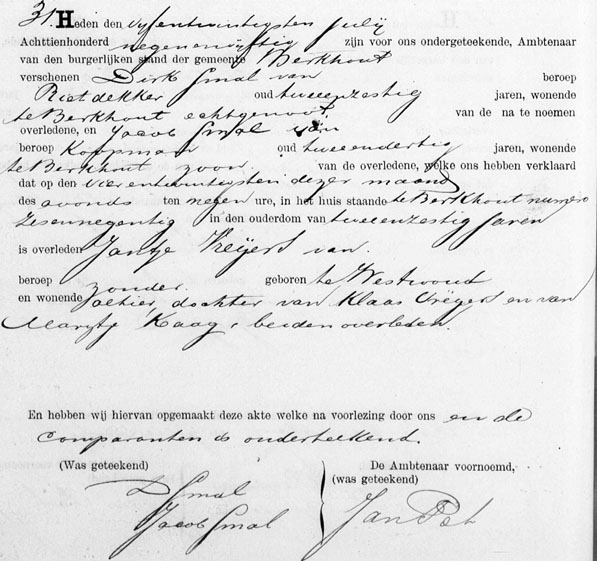 31. Heden den vyfentwintigsten July
Achttienhonderd negenenvyftig zijn voor ons ondergeteekende, Ambtenaar
van den burgerlijken stand der gemeente Berkhout
verschenen Dirk Smal van beroep
Rietdekker oud tweeenzestig jaren, wonende
te Berkhout echtgenoot van de na te noemen
overledene, en Jacob Smal van
beroep Koopman oud tweeendertig jaren, wonende
te Berkhout zoon van de overledene, welke ons hebben verklaard
dat op den vierentwintigsten dezer maand
des avonds ten negen ure, in het huis staande te Berkhout numero
zesennegentig in den ouderdom van tweeenzestig jaren
is overleden Jantje Kreijers van
beroep zonder. geboren te Westwoud
en wonende alhier, dochter van Klaas en van
Marytje Kaag, beiden overleden.
En hebben wij hiervan opgemaakt deze akte welke na voorlezing door ons en de
comparanten is onderteekend.
(Was geteekend) De Ambtenaar voornoemd,
(was geteekend)
D Smal
Jacob Smal
Jan Pet